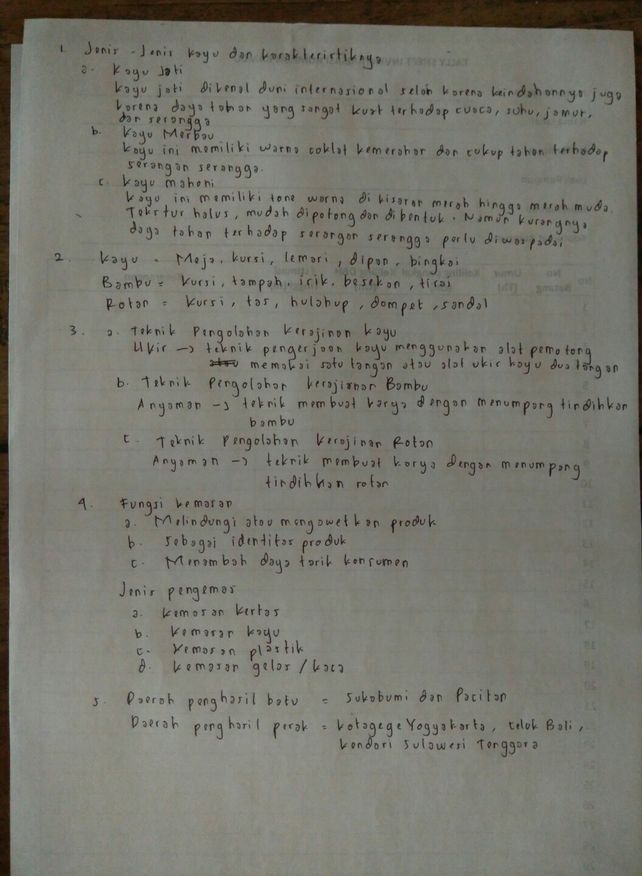 1. Jenis - Jenis kayu dan karakteristiknya
a. Kayu Jati
Kayu jati dikenal duni internasional selain karena keindahannya juga
karena daya tahan yang sangat kuat terhadap cuaca, suhu, jamur,
dan serangga
b. Kayu Merbau
Kayu ini memiliki warna coklat kemerahan dan cukup tahan terhadap
serangan serangga.
c. Kayu mahoni
Kayu ini memiliki tone warna di kisaran merah hingga merah muda.
Tekstur halus, mudah dipotong dan dibentuk. Namun kurangnya
daya tahan terhadap serangan serangga perlu diwaspadai
2. Kayu = Meja, kursi, lemari, dipan, bingkai
Bambu = Kursi, tampah, irik, besekan, tirai
Rotan = Kursi, tas, hulahup, dompet, sandal
3. a. Teknik Pengolahan Kerajinan Kayu
Ukir → teknik pengerjaan kayu menggunakan alat pemotong
memakai satu tangan atau alat ukir kayu dua tangan
b. Teknik Pengolahan kerajianan Bambu
Anyaman → teknik membuat karya dengan menumpang tindihkan
bambu
c. Teknik Pengolahan Kerajinan Rotan
Anyaman → teknik membuat karya dengan menumpang
tindihkan rotan
4. Fungsi kemasan
a. Melindungi atau mengawetkan produk
b. Sebagai identitas produk
c. Menambah daya tarik konsumen
Jenis pengemas
a. Kemasan kertas
b. Kemasan kayu
c. Kemasan plastik
d. Kemasan gelas / kaca
5. Daerah penghasil batu = Sukabumi dan Pacitan
Daerah penghasil perak = kotagege Yogyakarta, celuk Bali,
kendari Sulawesi Tenggara